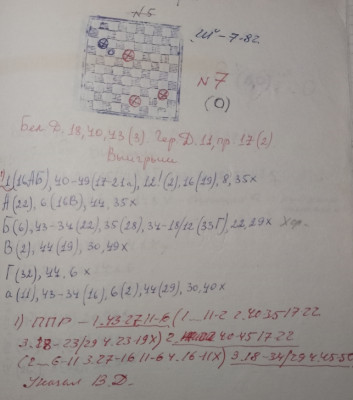 N 5
Ш - 7-82
N 7
(0)
Бел. Д. 18, 40, 43 (3). Чер. Д. 11, пр. 17 (2)
Выигрыш
1 (16АБ), 40-49 (17-21а), 12! (2), 16 (19), 8, 35х
А (22), 6 (16В), 44, 35х
Б (6), 43-34 (22), 35 (28), 34-18/12 (33Г), 22, 29х Хор.
В (2), 44 (19), 30, 49х
Г (32), 44, 6 х
а (11), 43-34 (16), 6 (2), 44 (29), 30, 40х
1) ППР - 1. 43.27 11-6 (1 ... 11-2 2. 40.35 17-22
3. 18-23/29 4. 23-19Х) 2. 40-45 17-22
(2 ... 6-11 3. 27-16 11-6 4. 16-11Х) 3. 18-34/29 4. 45-50
Указал В.Д.